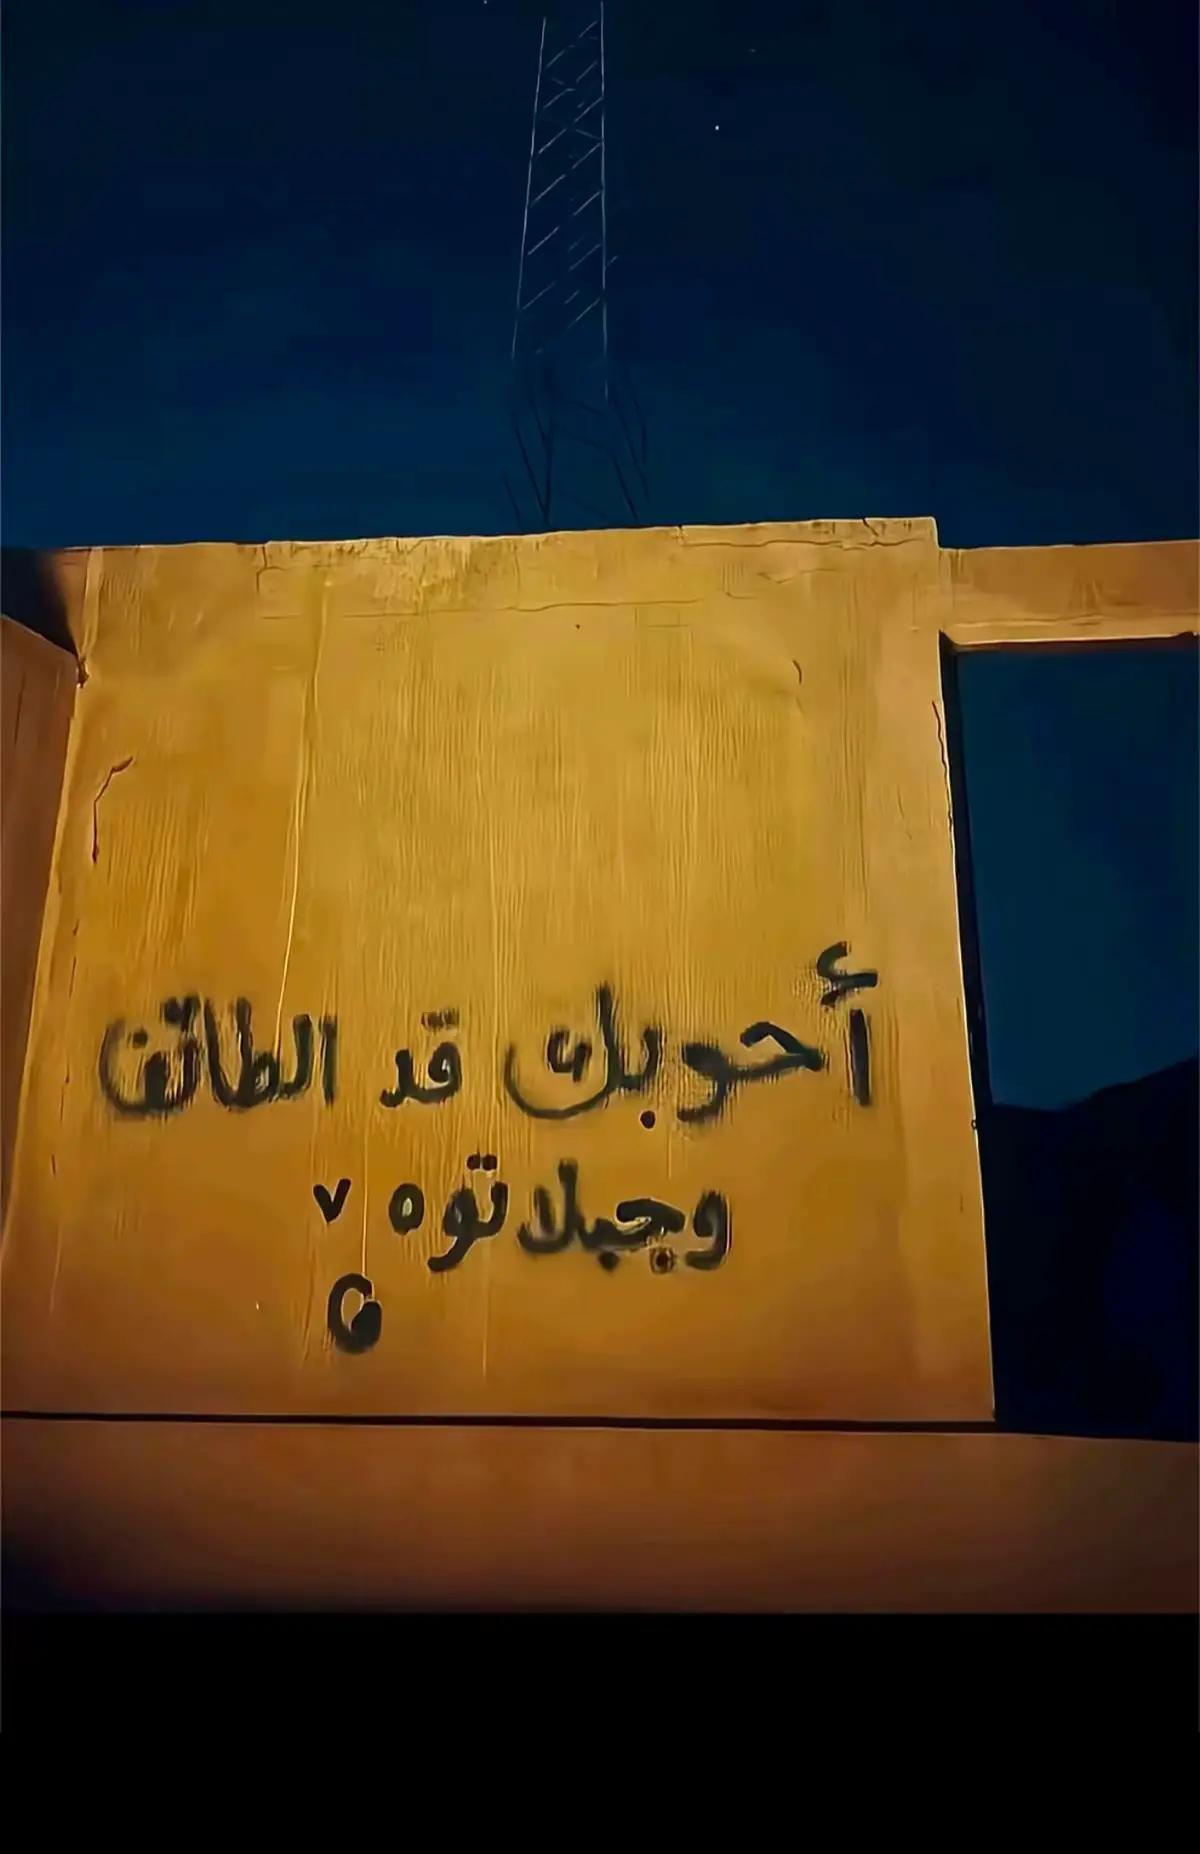 أحوبك قد الطائف
وجبلاتوه ٧